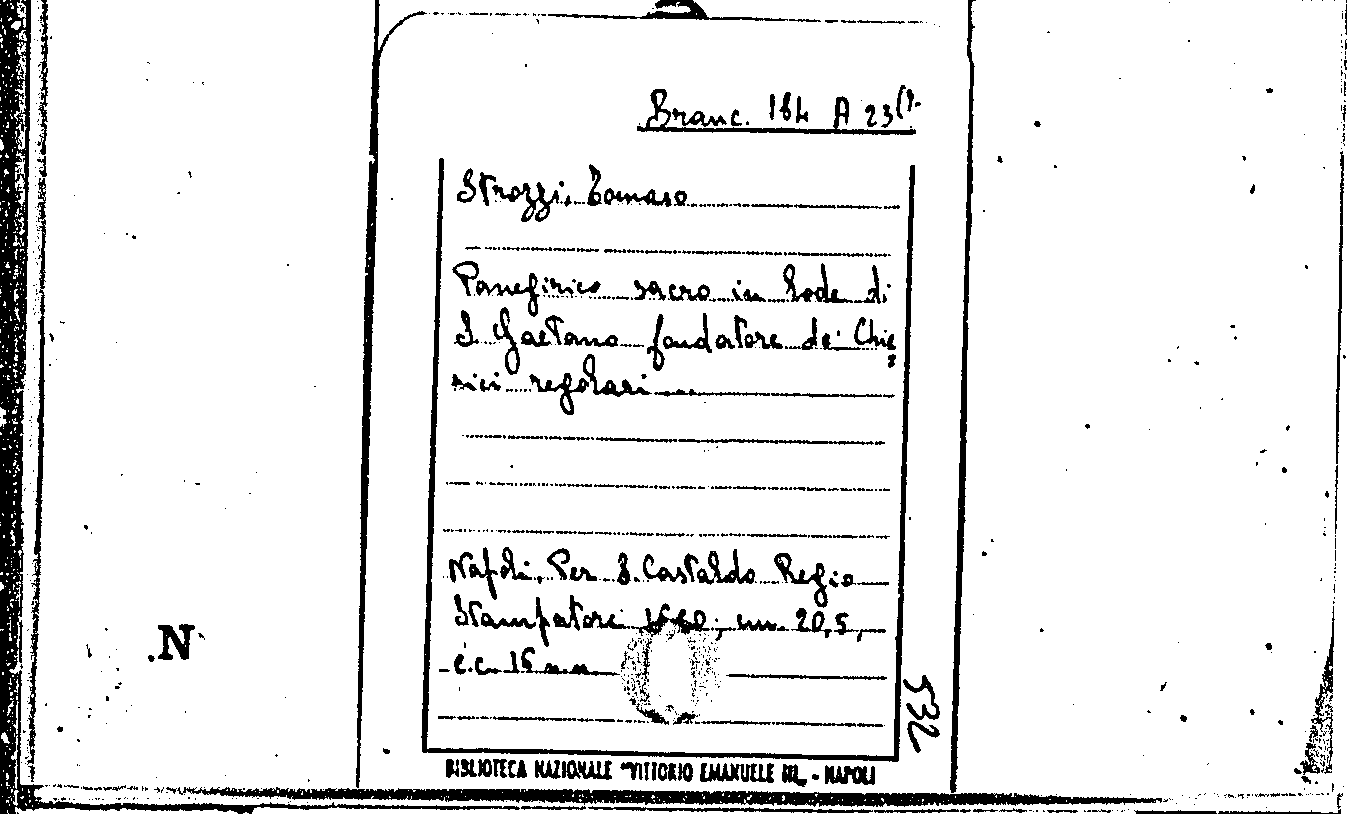 Branc. 164 A 23(9.
Strozzi, Tomaso
Panegirico sacro in lode di
S. Gaetano fondatore de' Chie,
rici regolari ...
Napoli, Per S. Castaldo Regio
Stampatore 1660; cm. 20,5,
c.c. 16 n.n.
532
.N
BIBLIOTECA NAZIONALE "VITTORIO EMANUELE III„ - NAPOLI